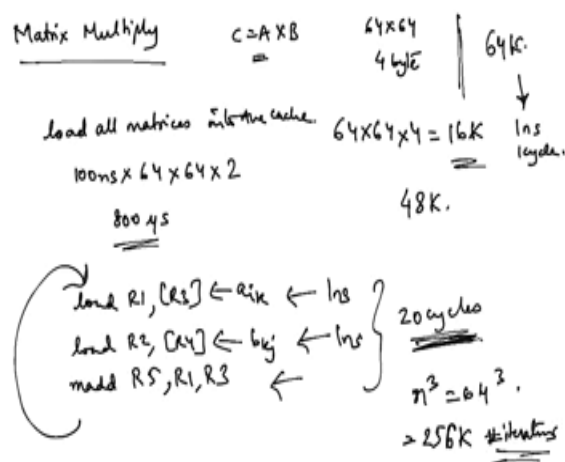 Matrix Multiply
C=A×B
64×64
4 byte
64K.
load all matrices into the cache.
64×64×4=16K
1ns
1cycle.
100ns × 64 × 64 × 2
48K.
800 μs
load R1, [R3] ← aik ← 1ns
load R2, [R4] ← bkj ← 1ns
madd R5, R1, R3 ←
20 cycles
n³ = 64³
= 256K #iterations